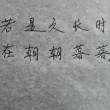 若是久长时
在朝朝暮暮